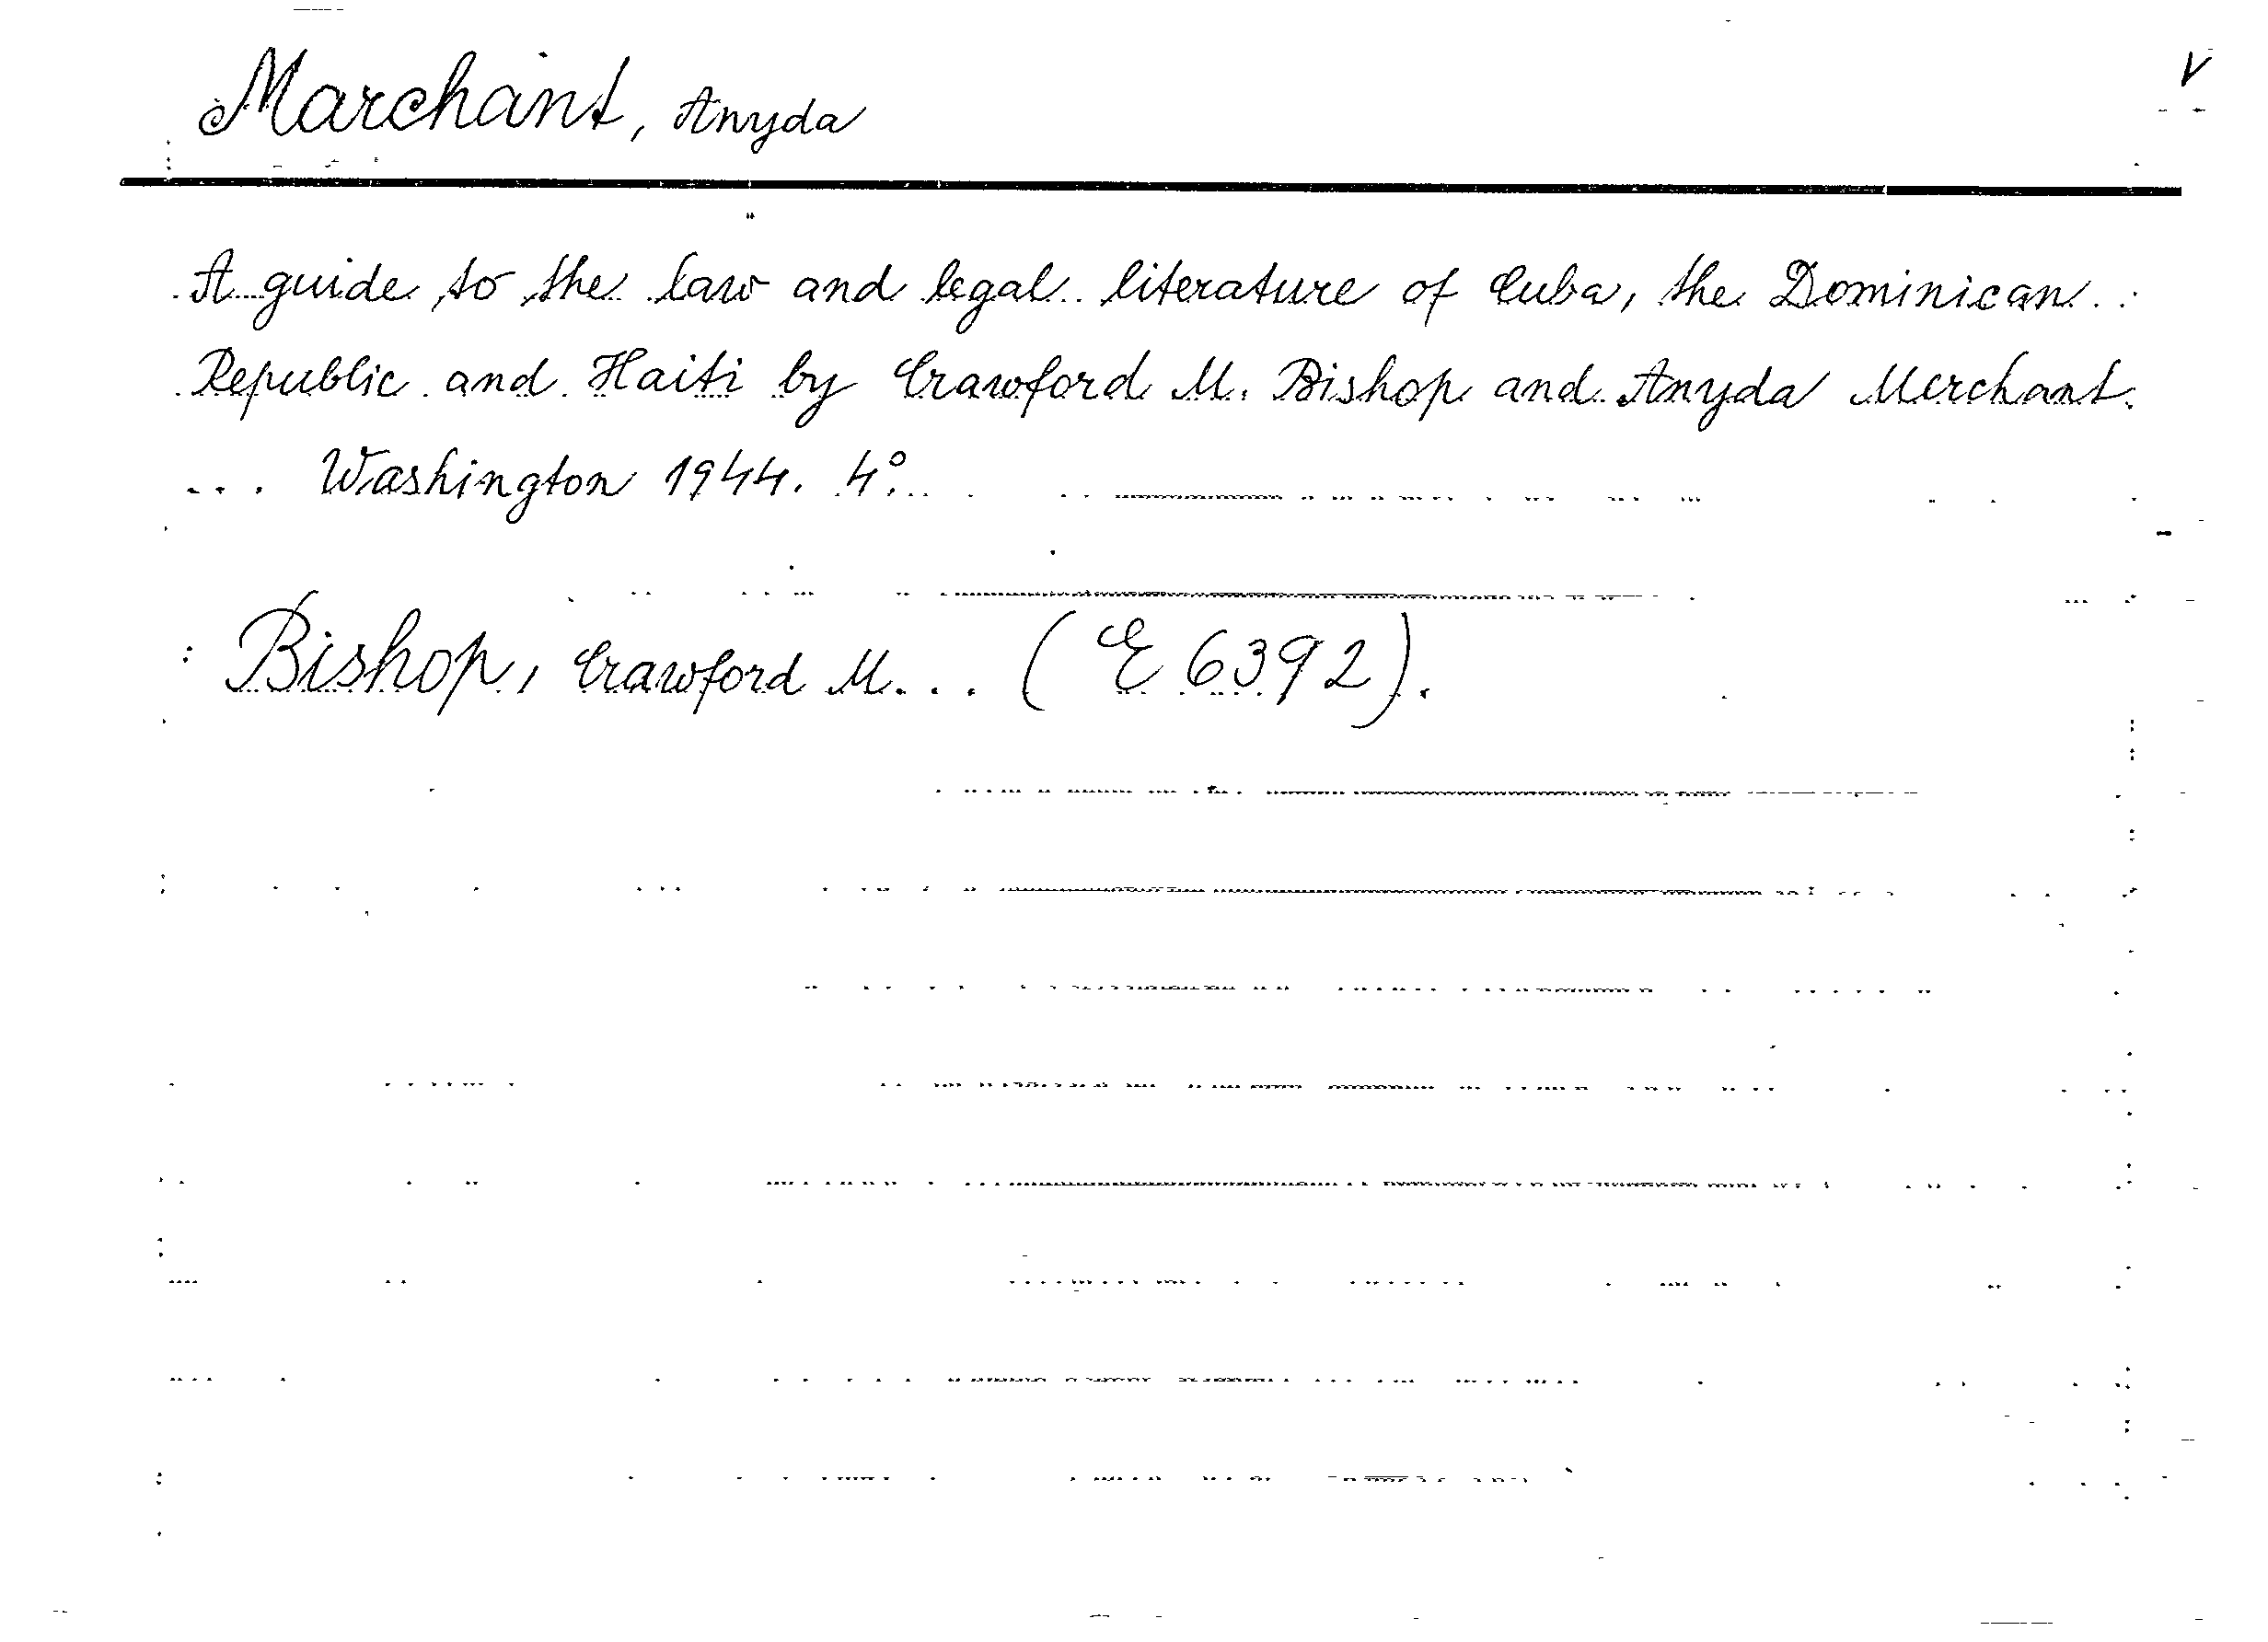 Marchant, Anyda
V
A guide to the law and legal literature of Cuba, the Dominican
Republic and Haiti by Crawford M. Bishop and Anyda Merchant.
... Washington 1944. 4°.
Bishop, Crawford M... (E 6392).